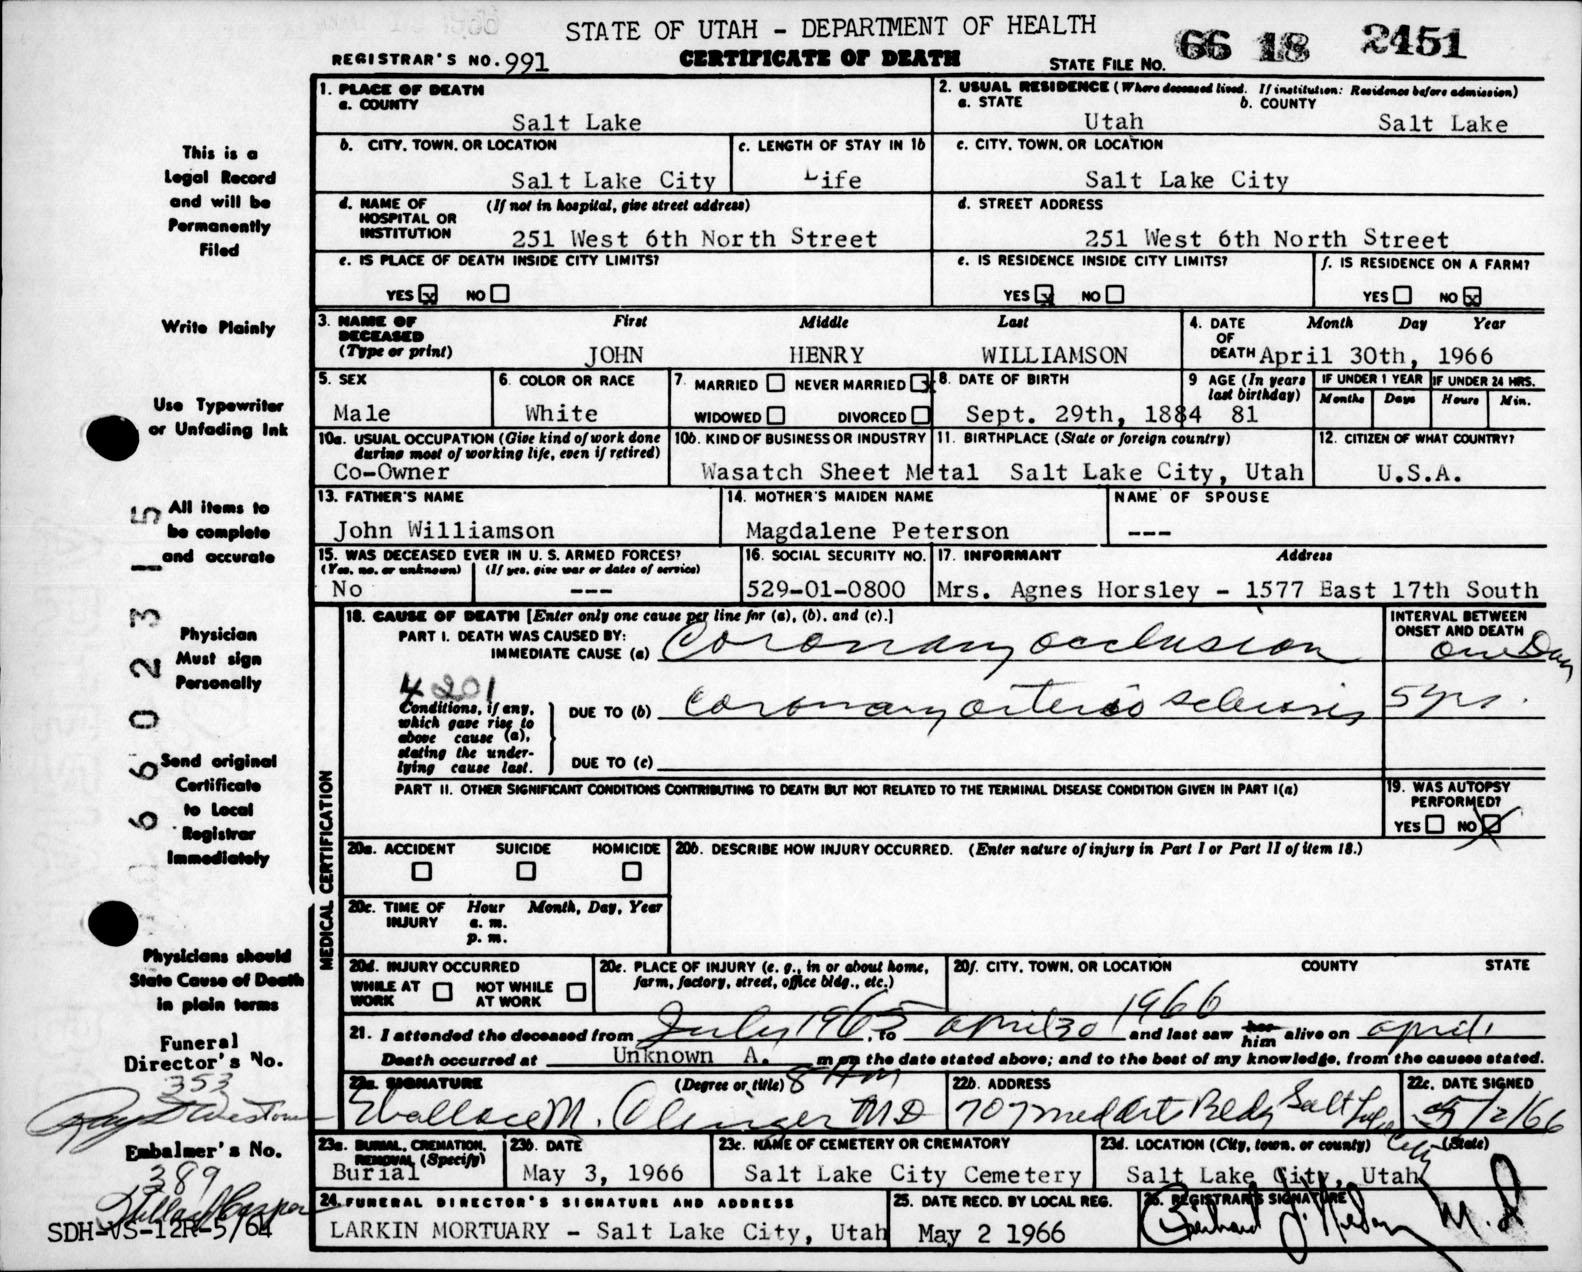 STATE OF UTAH - DEPARTMENT OF HEALTH
REGISTRAR'S NO. 991 CERTIFICATE OF DEATH STATE FILE NO. 66 18 2451
1. PLACE OF DEATH
a. COUNTY
Salt Lake
2. USUAL RESIDENCE (Where deceased lived. If institution: Residence before admission)
a. STATE b. COUNTY
Utah Salt Lake
b. CITY, TOWN, OR LOCATION
Salt Lake City
c. LENGTH OF STAY IN 1b
Life
c. CITY, TOWN, OR LOCATION
Salt Lake City
d. NAME OF HOSPITAL OR INSTITUTION (If not in hospital, give street address)
251 West 6th North Street
d. STREET ADDRESS
251 West 6th North Street
e. IS PLACE OF DEATH INSIDE CITY LIMITS?
YES x NO
e. IS RESIDENCE INSIDE CITY LIMITS?
YES x NO
f. IS RESIDENCE ON A FARM?
YES NO x
3. NAME OF DECEASED (Type or print)
First Middle Last
JOHN HENRY WILLIAMSON
4. DATE OF DEATH Month Day Year
April 30th, 1966
5. SEX
Male
6. COLOR OR RACE
White
7. MARRIED NEVER MARRIED x
WIDOWED DIVORCED
8. DATE OF BIRTH
Sept. 29th, 1884
9 AGE (In years last birthday)
81
IF UNDER 1 YEAR IF UNDER 24 HRS.
Months Days Hours Min.
10a. USUAL OCCUPATION (Give kind of work done during most of working life, even if retired)
Co-Owner
10b. KIND OF BUSINESS OR INDUSTRY
Wasatch Sheet Metal
11. BIRTHPLACE (State or foreign country)
Salt Lake City, Utah
12. CITIZEN OF WHAT COUNTRY?
U.S.A.
13. FATHER'S NAME
John Williamson
14. MOTHER'S MAIDEN NAME
Magdalene Peterson
NAME OF SPOUSE
---
15. WAS DECEASED EVER IN U. S. ARMED FORCES?
(Yes, no, or unknown) (If yes, give war or dates of service)
No ---
16. SOCIAL SECURITY NO.
529-01-0800
17. INFORMANT Address
Mrs. Agnes Horsley - 1577 East 17th South
18. CAUSE OF DEATH [Enter only one cause per line for (a), (b), and (c).]
PART I. DEATH WAS CAUSED BY:
IMMEDIATE CAUSE (a) Coronary occlusion
INTERVAL BETWEEN ONSET AND DEATH
One Day
4201
Conditions, if any, which gave rise to above cause (a), stating the underlying cause last.
DUE TO (b) coronary arterio sclerosis 5 yrs.
DUE TO (c)
PART II. OTHER SIGNIFICANT CONDITIONS CONTRIBUTING TO DEATH BUT NOT RELATED TO THE TERMINAL DISEASE CONDITION GIVEN IN PART I(a)
19. WAS AUTOPSY PERFORMED?
YES NO
MEDICAL CERTIFICATION
20a. ACCIDENT SUICIDE HOMICIDE
20b. DESCRIBE HOW INJURY OCCURRED. (Enter nature of injury in Part I or Part II of item 18.)
20c. TIME OF INJURY Hour Month, Day, Year
a. m.
p. m.
20d. INJURY OCCURRED
WHILE AT WORK NOT WHILE AT WORK
20e. PLACE OF INJURY (e. g., in or about home, farm, factory, street, office bldg., etc.)
20f. CITY, TOWN, OR LOCATION COUNTY STATE
21. I attended the deceased from July 1965, to april 30 1966 and last saw her him alive on april 1
Death occurred at Unknown A. m on the date stated above; and to the best of my knowledge, from the causes stated.
8 AM
22a. SIGNATURE (Degree or title)
Wallace M. MD
22b. ADDRESS
707 Med Art Bldg Salt Lake City
22c. DATE SIGNED
5/2/66
23a. BURIAL, CREMATION, REMOVAL (Specify)
Burial
23b. DATE
May 3, 1966
23c. NAME OF CEMETERY OR CREMATORY
Salt Lake City Cemetery
23d. LOCATION (City, town, or county) (State)
Salt Lake City, Utah
24. FUNERAL DIRECTOR'S SIGNATURE AND ADDRESS
LARKIN MORTUARY - Salt Lake City, Utah
25. DATE RECD. BY LOCAL REG.
May 2 1966
26. REGISTRAR'S SIGNATURE
M.D
This is a
Legal Record
and will be
Permanently
Filed
Write Plainly
Use Typewriter
or Unfading Ink
All items to
be complete
and accurate
Physician
Must sign
Personally
Send original
Certificate
to Local
Registrar
Immediately
Physicians should
State Cause of Death
in plain terms
66023 15
Funeral
Director's No.
353
Embalmer's No.
389
SDH-VS-12R-5/64